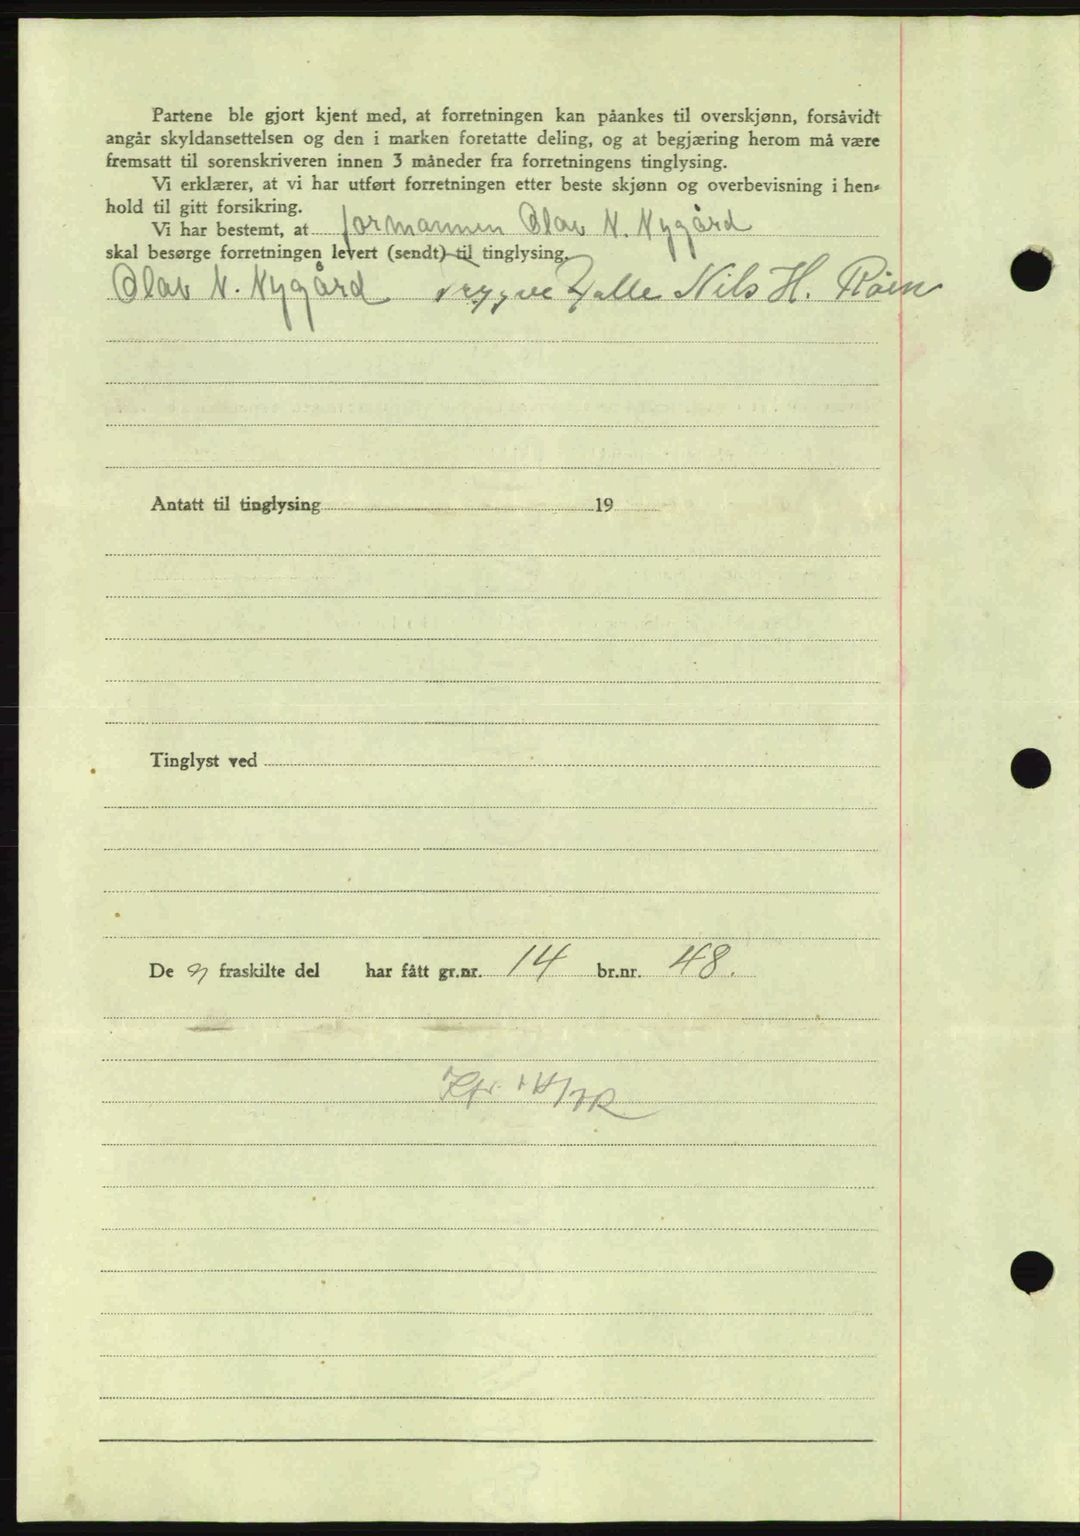 Partene ble gjort kjent med, at forretningen kan påankes til overskjønn, forsåvidt
angår skyldansettelsen og den i marken foretatte deling, og at begjæring herom må være
fremsatt til sorenskriveren innen 3 måneder fra forretningens tinglysing.
Vi erklærer, at vi har utført forretningen etter beste skjønn og overbevisning i hen-
hold til gitt forsikring.
Vi har bestemt, at formannen Olav N. Nygård
skal besørge forretningen levert (sendt) til tinglysing.
Olav N. Nygård Trygve Halle Nils H. Röen
Antatt til tinglysing 19
Tinglyst ved
De n fraskilte del har fått gr.nr. 14 br.nr. 48.